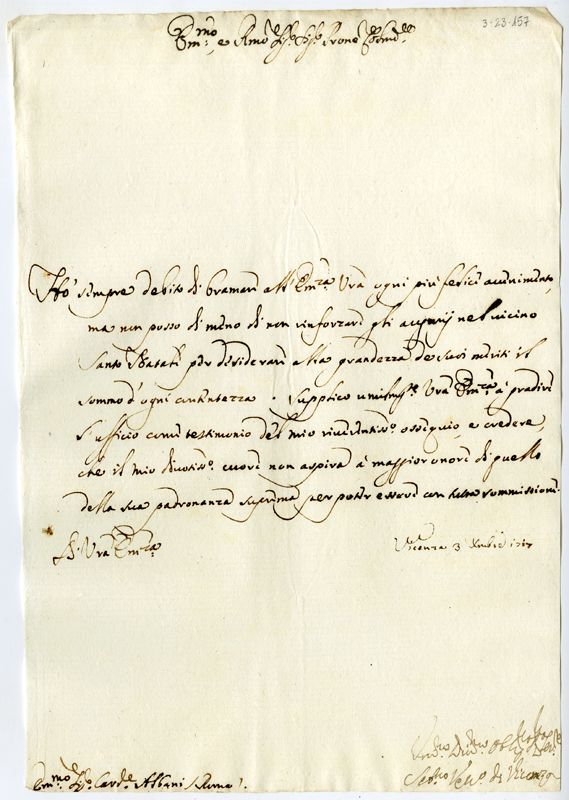 3-23-157
Em:mo e Rmo Sig.r Sig.r Prone Colmo
Hò sempre debito di bramare all'Em:za Vra ogni più felice avvenimento,
ma non posso di meno di non rinforzare gli augurij nel vicino
Santo Natale per desiderare alla grandezza de suoi meriti il
sommo d'ogni contentezza. Supplico umilmte Vra Em:za à gradire
l'ufficio come testimonio del mio riverentissº ossequio, e credere,
che il mio divotissº cuore non aspira à maggior onore di quello
della sua padronanza suprema per poter essere con tutta sommissione.
Di Vra Em:za
Vicenza 3 Xmbre 1717
Em:mo Sig.r Card.e Albani / Roma /.
Vesco di Vicenza